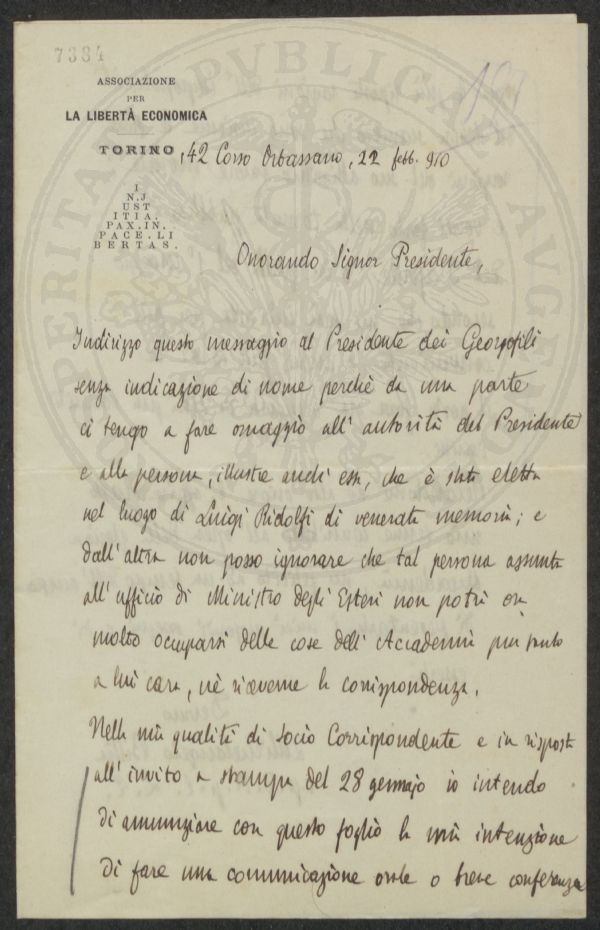 7384
187
ASSOCIAZIONE
PER
LA LIBERTÀ ECONOMICA
TORINO, 42 Corso Orbassano, 22 febb. 910
I
N.J
UST
ITIA.
PAX.IN.
PACE.LI
BERTAS.
Onorando Signor Presidente,
Indirizzo questo messaggio al Presidente dei Georgofili
senza indicazione di nome perchè da una parte
ci tengo a fare omaggio all'autorità del Presidente
e alla persona, illustre anch'essa, che è stata eletta
nel luogo di Luigi Ridolfi di venerata memoria; e
dall'altra non posso ignorare che tal persona assunta
all'ufficio di Ministro degli Esteri non potrà ora
molto occuparsi delle cose dell'Accademia pur tanto
a lui cara, nè riceverne la corrispondenza.
Nella mia qualità di Socio Corrispondente e in risposta
all'invito a stampa del 28 gennajo io intendo
di annunziare con questo foglio la mia intenzione
di fare una comunicazione orale o breve conferenza